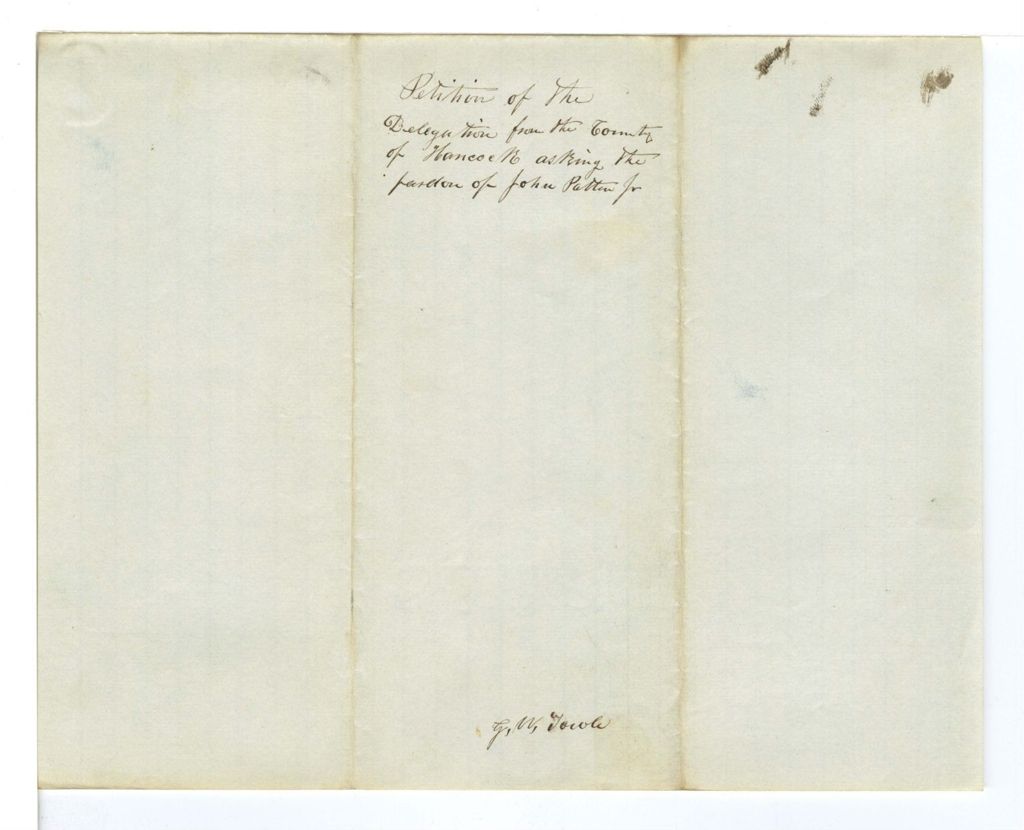 Petition of the
Delegation from the County
of Hancock asking the
pardon of John Patten Jr
G, W, Towle